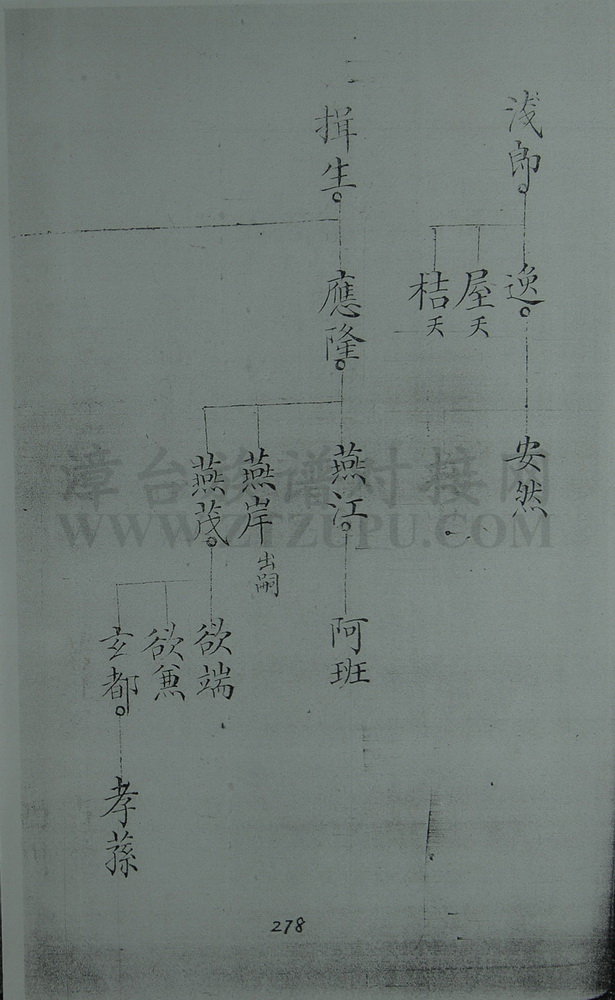 浅郎
逸
屋夭
桔夭
安然
揖生
應隆
燕江
燕岸出嗣
燕茂
阿班
欲端
欲兼
玄都
孝蓀
漳台族谱对接网
WWW.ZTZUPU.COM
278